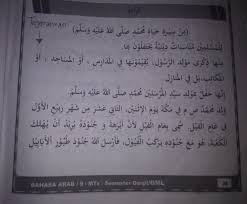 (مِنْ سِيْرَةِ حَيَاةِ مُحَمَّدٍ صَلَّى اللهُ عَلَيْهِ وَسَلَّمَ)
لِلْمُسْلِمِيْنَ مُنَاسَبَاتٌ دِيْنِيَّةٌ يَحْتَفِلُوْنَ بِهَا
مِنْهَا ذِكْرَى مَوْلِدِ الرَّسُوْلِ، يُقِيْمُوْنَهَا فِي الْمَدَارِسِ، أَوِ الْمَسَاجِدِ، أَوِ
الْمَكَاتِبِ، بَلْ فِي الْمَنَازِلِ
إِنَّهَا حَفْلُ مَوْلِدِ سَيِّدِ الْمُرْسَلِيْنَ مُحَمَّدٍ صَلَّى اللهُ عَلَيْهِ وَسَلَّمَ.
وُلِدَ مُحَمَّدٌ ص م فِي مَكَّةَ يَوْمَ الْإِثْنَيْنِ، الثَّانِيَ عَشَرَ مِنْ شَهْرِ رَبِيْعِ الْأَوَّلِ
فِي عَامِ الْفِيْلِ. سُمِّيَ بِعَامِ الْفِيْلِ لِأَنَّ أَبْرَهَةَ وَ جُنُوْدَهُ يُرِيْدُ أَنْ يُهْلِكَ
الْكَعْبَةَ، هُوَ مَعَ جُنُوْدِهِ يَرْكَبُ الْفِيْلَ، فَأَرْسَلَ اللهُ جُنُوْدَ طُيُوْرِ الْأَبَابِيْلِ
BAHASA ARAB / 9 / MTs / Semester Ganjil/